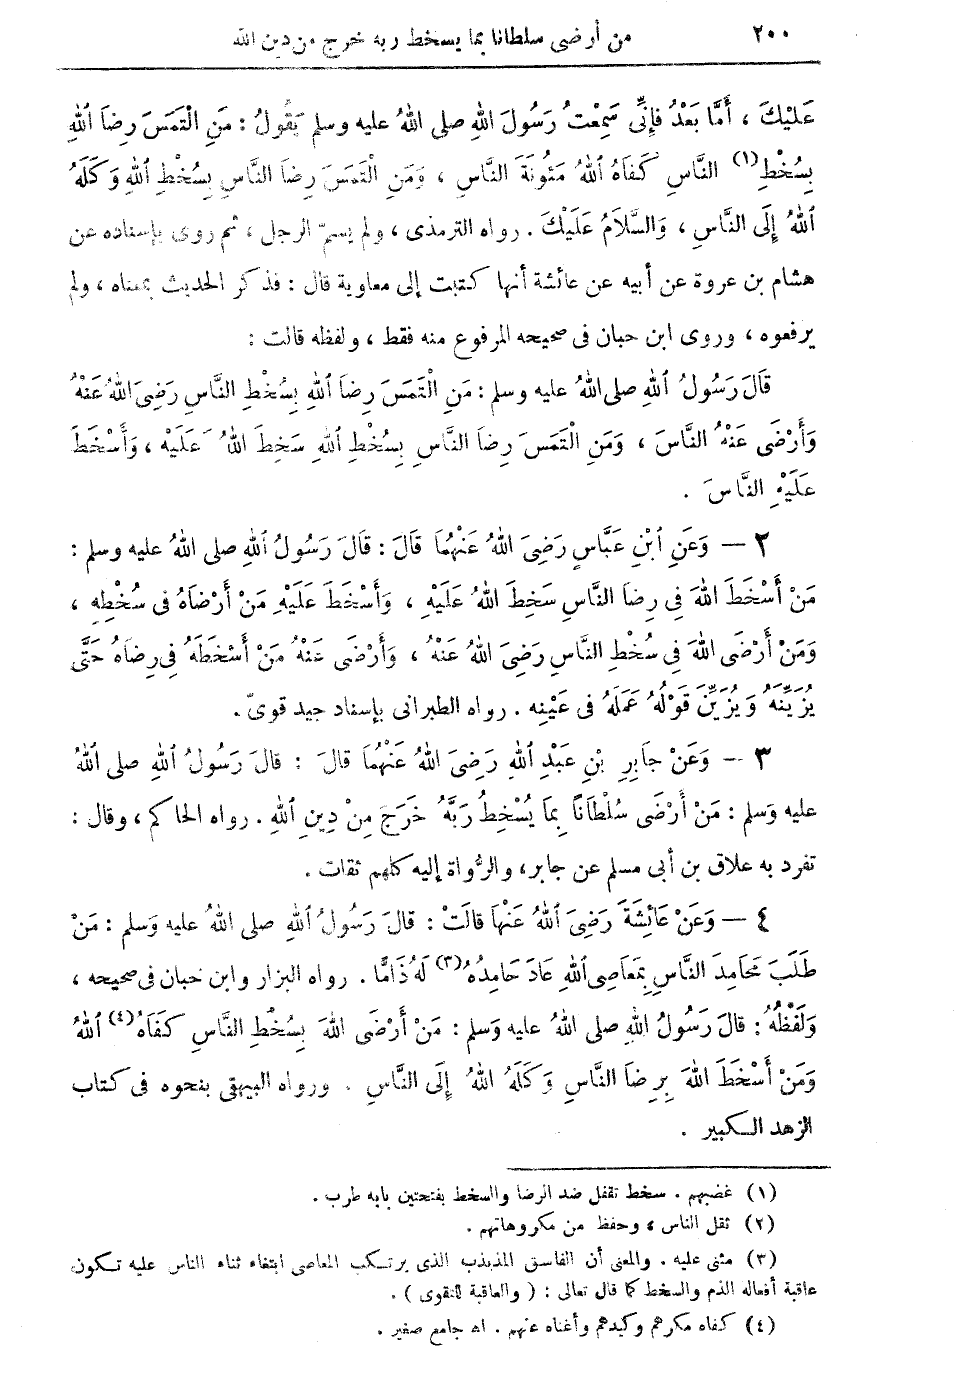 ٢٠٠ من أرضى سلطانا بما يسخط ربه خرج من دين الله
عَلَيْكَ ، أَمَّا بَعْدُ فَإِنِّي سَمِعْتُ رَسُولَ اللهِ صلى اللهُ عليه وسلم يَقُولُ : مَنِ الْتَمَسَ رِضَا اللهِ
بِسُخْطِ(١) النَّاسِ كَفَاهُ اللهُ مَئُونَةَ النَّاسِ ، وَمَنِ الْتَمَسَ رِضَا النَّاسِ بِسُخْطِ اللهِ وَكَلَهُ
اللهُ إِلَى النَّاسِ ، وَالسَّلَامُ عَلَيْكَ . رواه الترمذى ، ولم يسمّ الرجل ، ثم روى بإسناده عن
هشام بن عروة عن أبيه عن عائشة أنها كتبت إلى معاوية قال : فذكر الحديث بمعناه ، ولم
يرفعوه ، وروى ابن حبان فى صحيحه المرفوع منه فقط ، ولفظه قالت :
قَالَ رَسُولُ اللهِ صلى اللهُ عليه وسلم : مَنِ الْتَمَسَ رِضَا اللهِ بِسُخْطِ النَّاسِ رَضِىَ اللهُ عَنْهُ
وَأَرْضَى عَنْهُ النَّاسَ ، وَمَنِ الْتَمَسَ رِضَا النَّاسِ بِسُخْطِ اللهِ سَخِطَ اللهُ عَلَيْهِ ، وَأَسْخَطَ
عَلَيْهِ النَّاسَ .
٢ – وَعَنِ ابْنِ عَبَّاسٍ رَضِىَ اللهُ عَنْهُمَا قَالَ : قَالَ رَسُولُ اللهِ صلى اللهُ عليه وسلم :
مَنْ أَسْخَطَ اللهَ فِى رِضَا النَّاسِ سَخِطَ اللهُ عَلَيْهِ ، وَأَسْخَطَ عَلَيْهِ مَنْ أَرْضَاهُ فى سُخْطِهِ ،
وَمَنْ أَرْضَى اللهَ فِى سُخْطِ النَّاسِ رَضِىَ اللهُ عَنْهُ ، وَأَرْضَى عَنْهُ مَنْ أَسْخَطَهُ فِى رِضَاهُ حَتَّى
يُزَيِّنَهُ وَيُزَيِّنَ قَوْلَهُ عَمَلَهُ فى عَيْنِه . رواه الطبرانى بإسناد جيد قوىّ .
٣ – وَعَنْ جَابِرِ بْنِ عَبْدِ اللهِ رَضِىَ اللهُ عَنْهُمَا قالَ : قالَ رَسُولُ اللهِ صلى اللهُ
عليه وَسلم : مَنْ أَرْضَى سُلْطَانًا بِمَا يُسْخِطُ رَبَّهُ خَرَجَ مِنْ دِينِ اللهِ . رواه الحاكم ، وقال :
تفرد به علاق بن أبى مسلم عن جابر، والرُّواة إليه كلهم ثقات .
٤ – وَعَنْ عَائِشَةَ رَضِىَ اللهُ عَنْهَا قالَتْ : قالَ رَسُولُ اللهِ صلى اللهُ عليه وَسلم : مَنْ
طَلَبَ مَحَامِدَ النَّاسِ بِمَعَاصِى اللهِ عَادَ حَامِدُهُ(٣) لَهُ ذَامًّا . رواه البزار وابن حبان فى صحيحه ،
وَلَفْظُهُ : قالَ رَسُولُ اللهِ صلى اللهُ عليه وَسلم : مَنْ أَرْضَى اللهَ بِسُخْطِ النَّاسِ كَفَاهُ(٤) اللهُ
وَمَنْ أَسْخَطَ اللهَ بِرِضَا النَّاسِ وَكَلَهُ اللهُ إِلَى النَّاسِ . ورواه البيهقى بنحوه فى كتاب
الزهد الكبير .
(١) غضبهم . سخط تقفل ضد الرضا والسخط بفتحتين بابه طرب .
(٢) ثقل الناس ، وحفظ من مكروهاتهم .
(٣) مثنى عليه . والمعنى أن الفاسق المذبذب الذى يرتكب المعاصى ابتغاء ثناء الناس عليه تكون
عاقبة أفعاله الذم والسخط كما قال تعالى : ( والعاقبة للتقوى ) .
(٤) كفاه مكرهم وكيدهم وأغناه عنهم . اه جامع صغير .